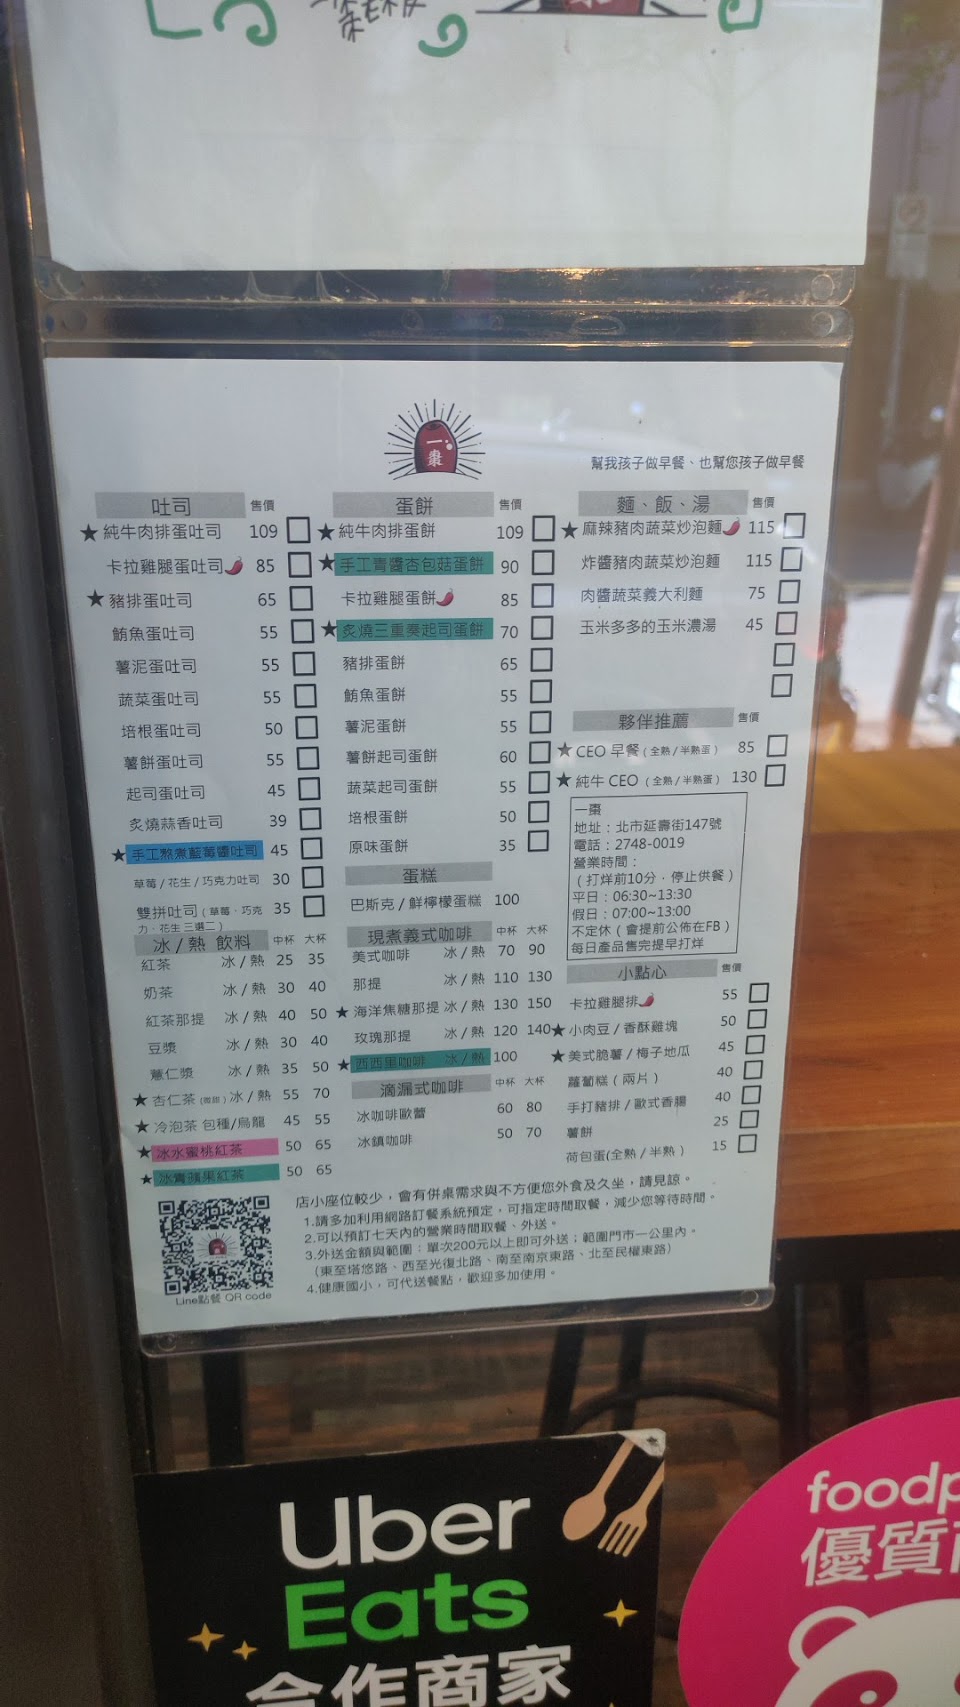 一棗
幫我孩子做早餐、也幫您孩子做早餐
吐司 售價
★純牛肉排蛋吐司 109
卡拉雞腿蛋吐司 85
★豬排蛋吐司 65
鮪魚蛋吐司 55
薯泥蛋吐司 55
蔬菜蛋吐司 55
培根蛋吐司 50
薯餅蛋吐司 55
起司蛋吐司 45
炙燒蒜香吐司 39
★手工熬煮藍莓醬吐司 45
草莓/花生/巧克力吐司 30
雙拼吐司(草莓、巧克 35
力、花生 三選二)
蛋餅 售價
★純牛肉排蛋餅 109
★手工青醬杏包菇蛋餅 90
卡拉雞腿蛋餅 85
★炙燒三重奏起司蛋餅 70
豬排蛋餅 65
鮪魚蛋餅 55
薯泥蛋餅 55
薯餅起司蛋餅 60
蔬菜起司蛋餅 55
培根蛋餅 50
原味蛋餅 35
蛋糕
巴斯克/鮮檸檬蛋糕 100
麵、飯、湯 售價
★麻辣豬肉蔬菜炒泡麵 115
炸醬豬肉蔬菜炒泡麵 115
肉醬蔬菜義大利麵 75
玉米多多的玉米濃湯 45
夥伴推薦 售價
★CEO 早餐(全熟/半熟蛋) 85
★純牛 CEO (全熟/半熟蛋) 130
一棗
地址：北市延壽街147號
電話：2748-0019
營業時間：
（打烊前10分，停止供餐）
平日：06:30~13:30
假日：07:00~13:00
不定休（會提前公佈在FB）
每日產品售完提早打烊
冰/熱 飲料 中杯 大杯
紅茶 冰/熱 25 35
奶茶 冰/熱 30 40
紅茶那提 冰/熱 40 50
豆漿 冰/熱 30 40
薏仁漿 冰/熱 35 50
★杏仁茶(微甜)冰/熱 55 70
★冷泡茶 包種/烏龍 45 55
★冰水蜜桃紅茶 50 65
★冰青蘋果紅茶 50 65
現煮義式咖啡 中杯 大杯
美式咖啡 冰/熱 70 90
那提 冰/熱 110 130
★海洋焦糖那提 冰/熱 130 150
玫瑰那提 冰/熱 120 140
★西西里咖啡 冰/熱 100
滴漏式咖啡 中杯 大杯
冰咖啡歐蕾 60 80
冰鎮咖啡 50 70
小點心 售價
卡拉雞腿排 55
★小肉豆/香酥雞塊 50
★美式脆薯/梅子地瓜 45
蘿蔔糕（兩片） 40
手打豬排/歐式香腸 40
薯餅 25
荷包蛋(全熟/半熟) 15
店小座位較少，會有併桌需求與不方便您外食及久坐，請見諒。
1.請多加利用網路訂餐系統預定，可指定時間取餐，減少您等待時間。
2.可以預訂七天內的營業時間取餐、外送。
3.外送金額與範圍：單次200元以上即可外送；範圍門市一公里內。
（東至塔悠路、西至光復北路、南至南京東路、北至民權東路）
4.健康國小，可代送餐點，歡迎多加使用。
Line點餐 QR code
Uber
Eats
合作商家
foodp
優質